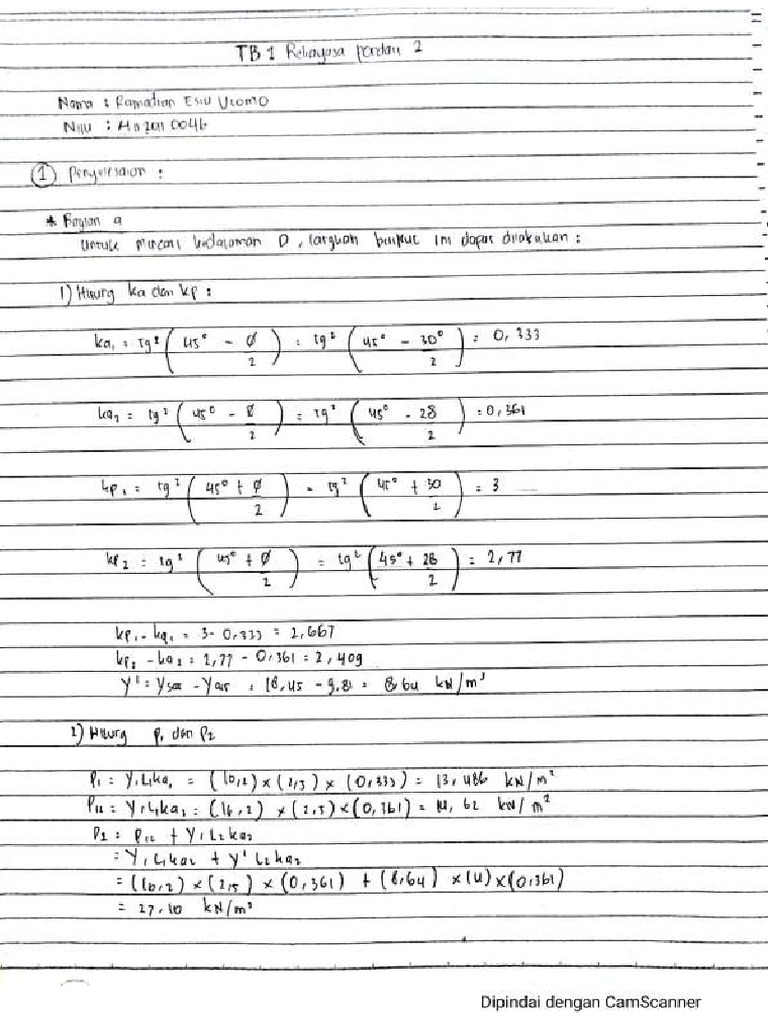 TB 1 Rekayasa Pondasi 2
Nama : Ramadhan Esiu Utomo
NIM :
① Penyelesaian :
* Bagian a
Untuk mencari kedalaman D, langkah berikut ini dapat dilakukan :
1) Hitung ka dan kp :
ka₁ = tg² (45° - Ø/2) = tg² (45° - 30°/2) = 0,333
ka₂ = tg² (45° - Ø/2) = tg² (45° - 28/2) = 0,361
kp₁ = tg² (45° + Ø/2) = tg² (45° + 30/2) = 3
kp₂ = tg² (45° + Ø/2) = tg² (45° + 28/2) = 2,77
kp₁ - ka₁ = 3 - 0,333 = 2,667
kp₂ - ka₂ = 2,77 - 0,361 = 2,409
γ' = γsat - γair = 18,45 - 9,81 = 8,64 kN/m³
2) Hitung P₁ dan P₂
P₁ = γ₁L₁ka₁ = (16,2) × (2,5) × (0,333) = 13,486 kN/m²
P₁₂ = γ₁L₁ka₂ = (16,2) × (2,5) × (0,361) = 14,62 kN/m²
P₂ = P₁₂ + γ₁L₂ka₂
= γ₁L₁ka₂ + γ'L₂ka₂
= (16,2) × (2,5) × (0,361) + (8,64) × (4) × (0,361)
= 27,10 kN/m²
Dipindai dengan CamScanner